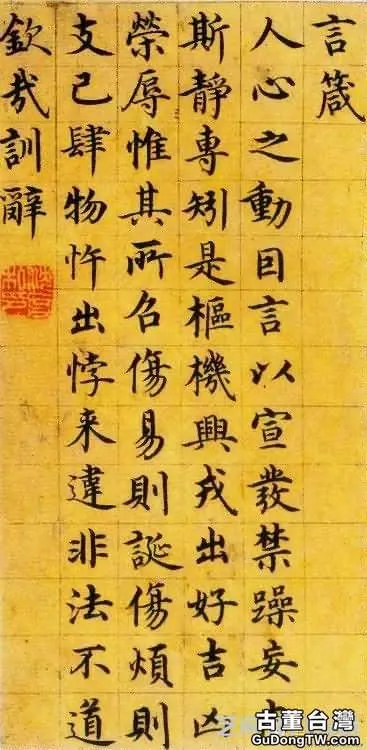 言箴
人心之動囙言以宣發禁躁妄
斯靜專矧是樞機興戎出好吉凶
榮辱惟其所召傷易則誕傷煩則
支己肆物忤出悖来違非法不道
欽哉訓辭
古董台灣
GuDongTW.com